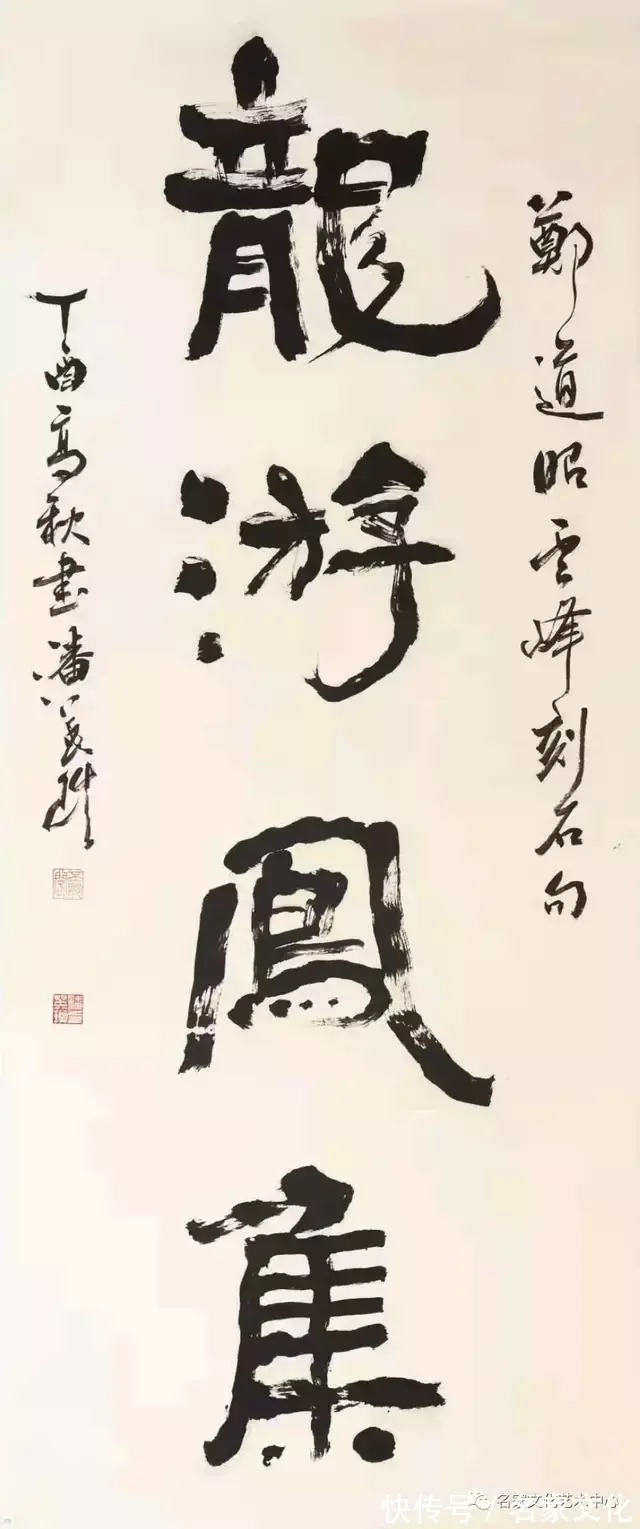 鄭道昭雲峰刻石句
龍游鳳集
丁酉高秋書潘善
名家文化艺术中心
快传号/名家文化